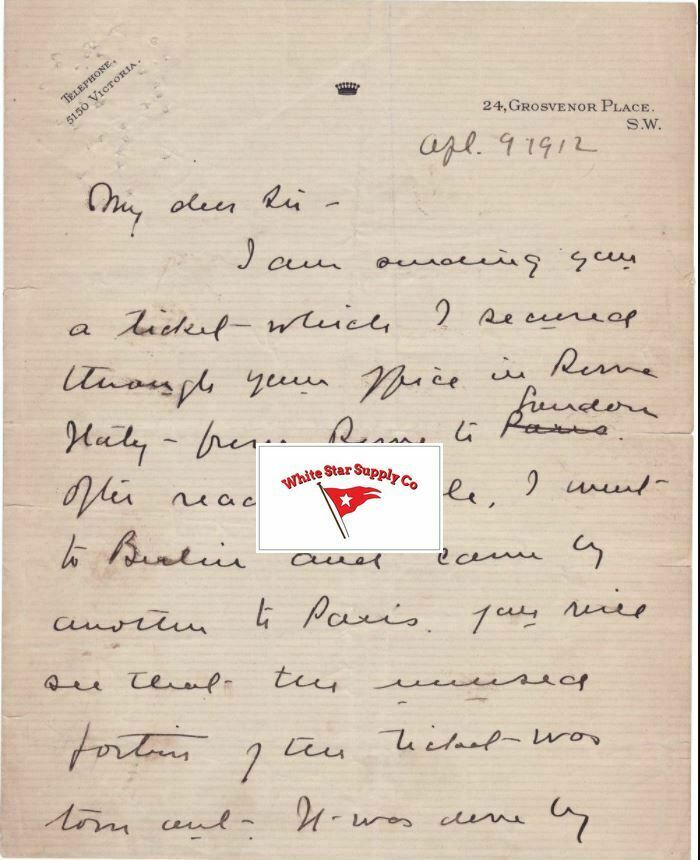 TELEPHONE,
5150 VICTORIA.
24, GROSVENOR PLACE.
S.W.
Apl. 9 1912
My dear Sir -
I am sending you
a ticket which I secured
through your office in Rome
London
Italy - from Rome to Paris.
White Star Supply Co
After I went
to Berlin and came by
another to Paris. You will
see that the unused
portion of the ticket was
torn out - It was done by